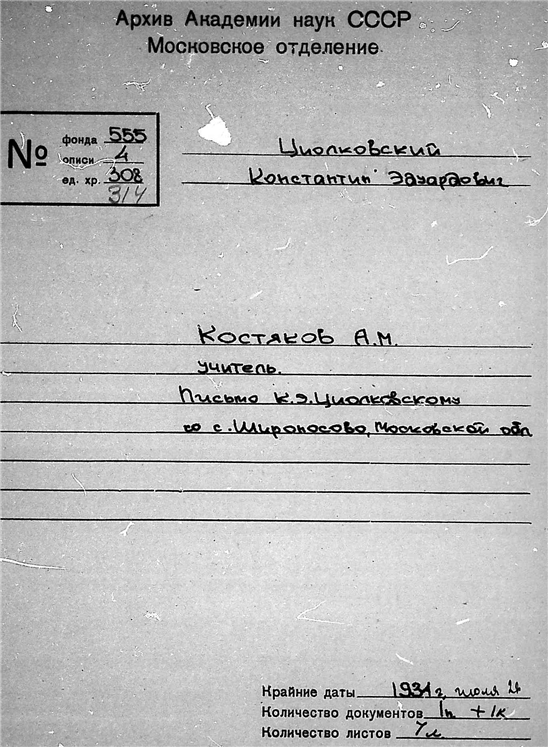 Архив Академии наук СССР
Московское отделение
№
фонда 555
описи 4
ед. хр. 308
314
Циолковский
Константин Эдуардович
Костяков А.М.
учитель.
Письмо К.Э.Циолковскому
со с. Широносово, Московской обл
Крайние даты 1934 г, июля
Количество документов 1п + 1к
Количество листов 7л